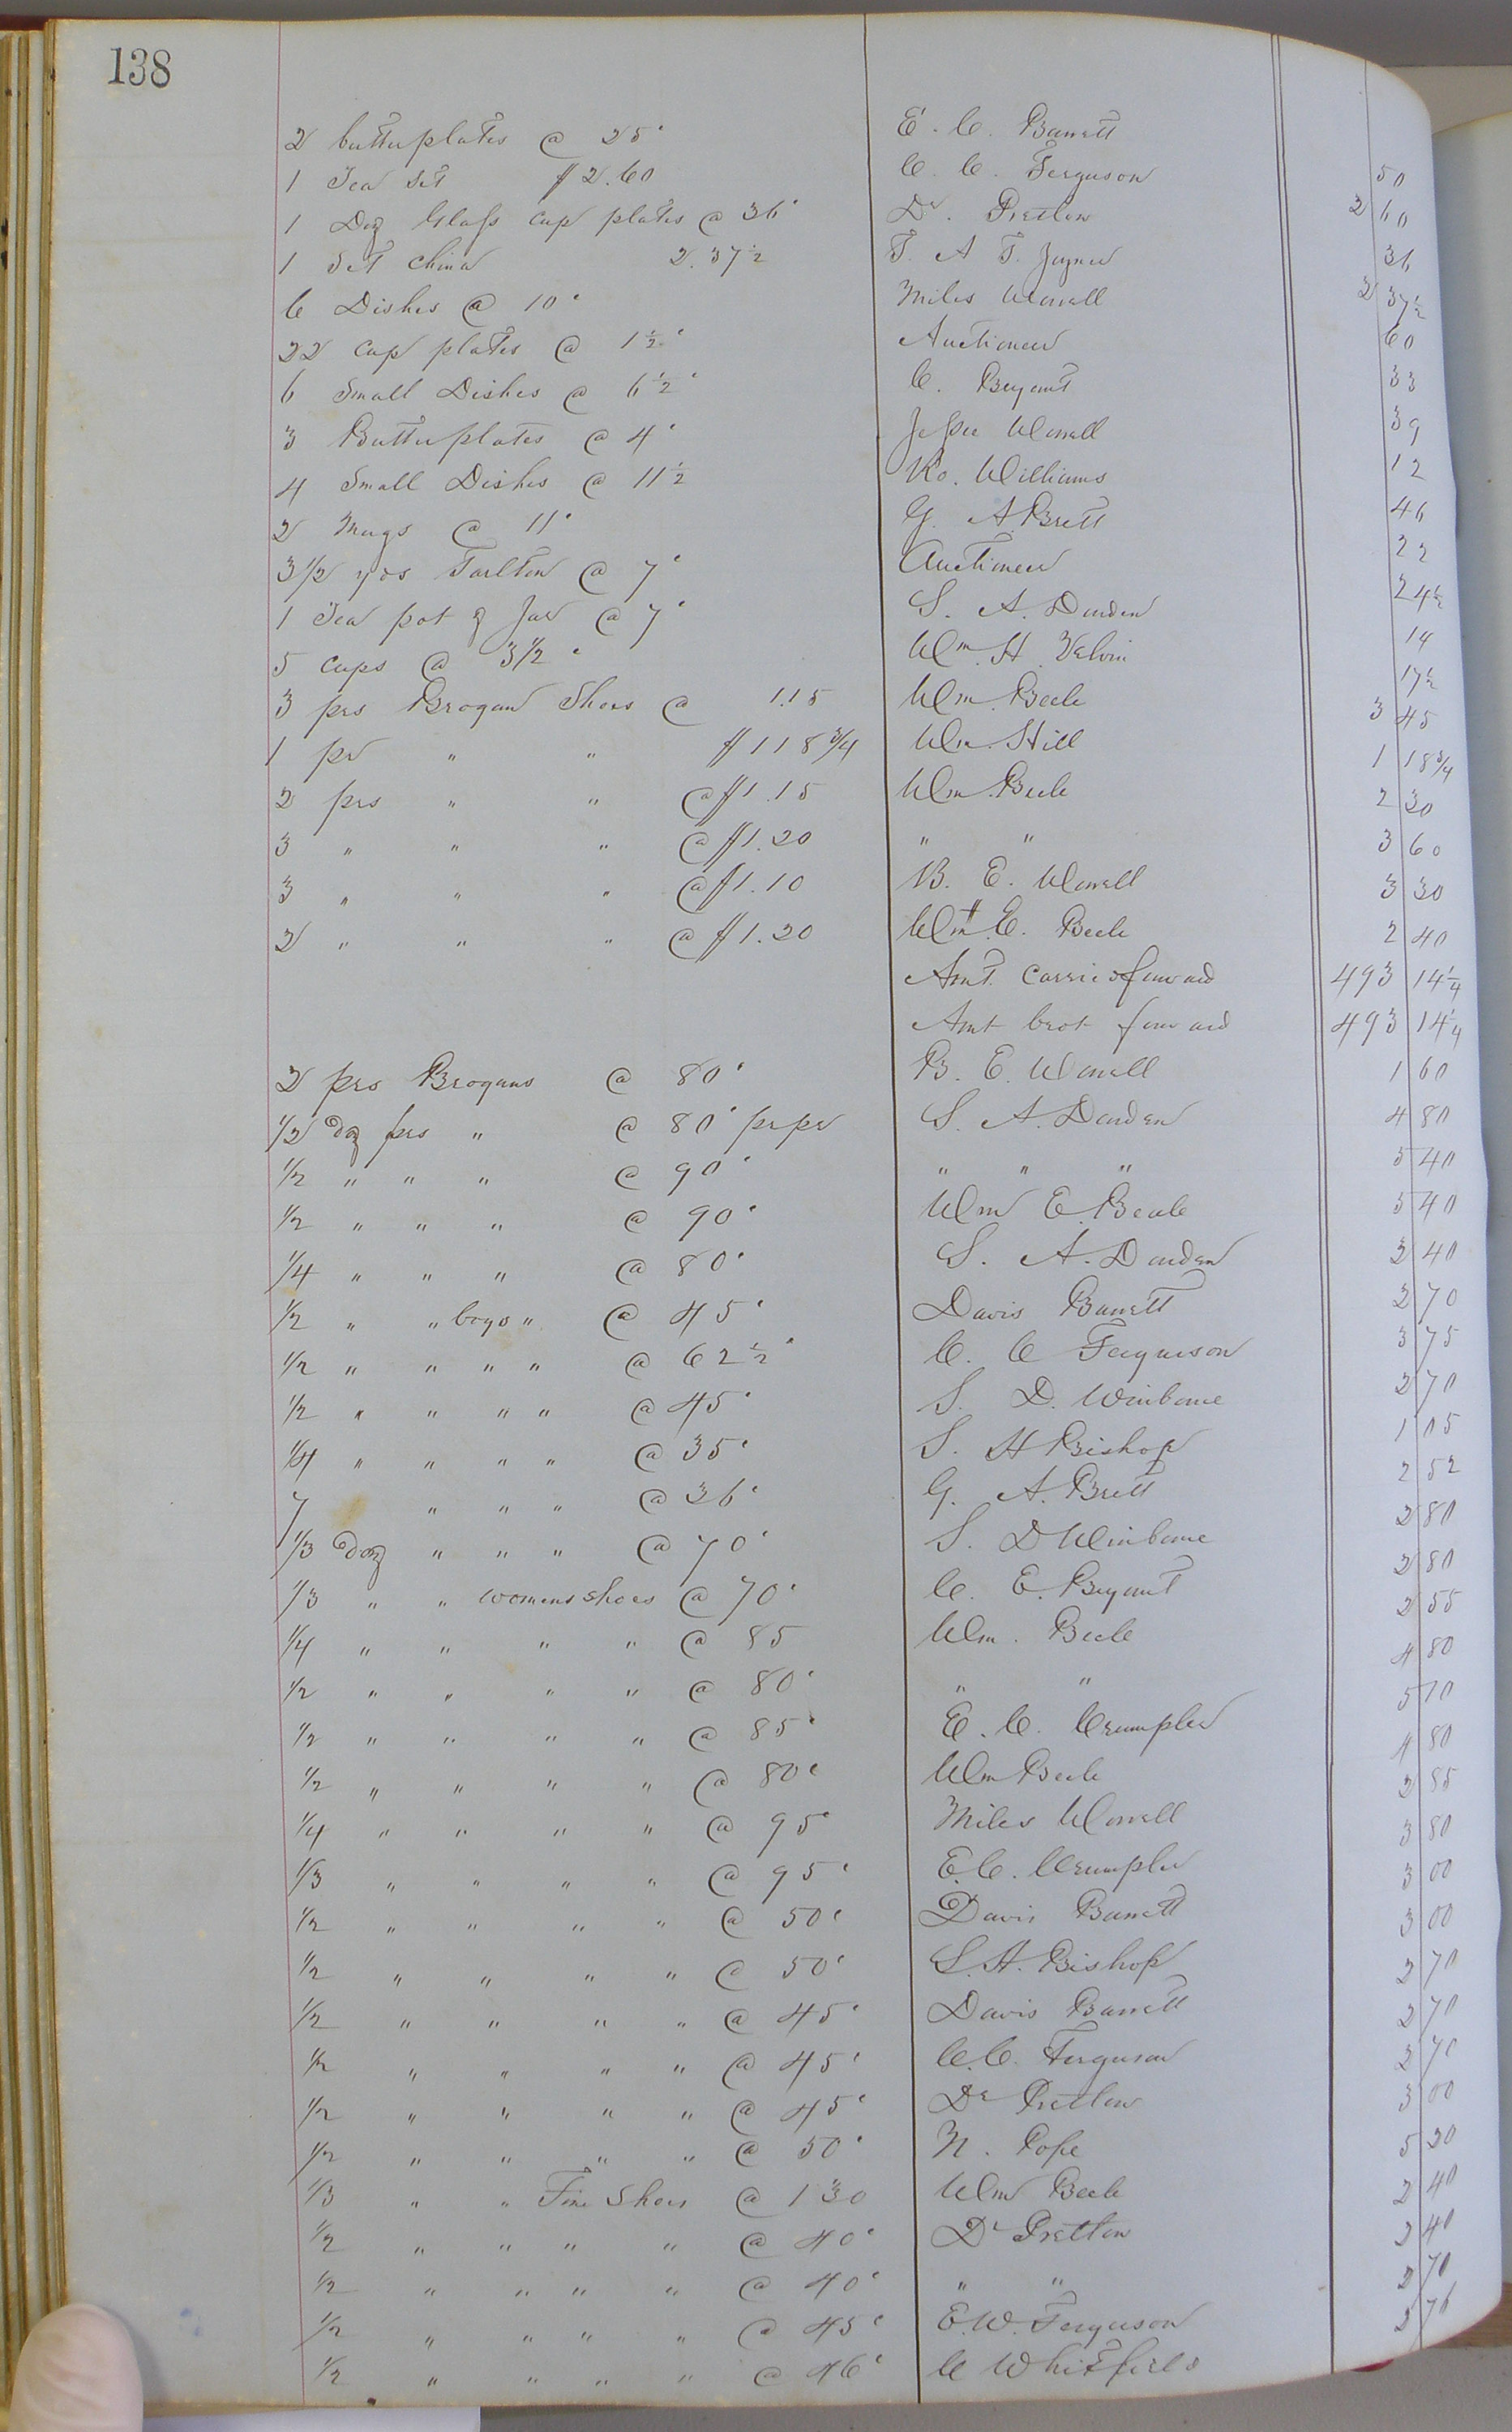 138
2 butterplates @ 25c E. C. Barrett 50
1 Tea Set $2.60 C. C. Ferguson 2 60
1 Doz Glass cup plates @ 36c Dr. Pretlow 36
1 Set China 2.37½ T. A T. Joyner 2 37½
6 Dishes @ 10c Miles Worrell 60
22 cup plates @ 1½c Auctioneer 33
6 Small Dishes @ 6½c C. Bryant 39
3 Butterplates @ 4c Jesse Worrell 12
4 Small Dishes @ 11½ Ro. Williams 46
2 Mugs @ 11c G. A. Brett 22
3½ yds Tarlton @ 7c Auctioneer 24½
1 Tea pot & Jar @ 7c S. A. Darden 14
5 cups @ 3½c Wm. H. Velvin 17½
3 prs Brogan Shoes @ 1.15 Wm. Beele 3 45
1 pr " " $1 18¾ Wm. Hill 1 18¾
2 prs " " @ $1.15 Wm. Beele 2 30
3 " " " @ $1.20 " " 3 60
3 " " " @ $1.10 B. E. Worrell 3 30
2 " " " @ $1.20 Wm. E. Beele 2 40
Amt. carried forward 493 14¼
Amt brot forward 493 14¼
2 prs Brogans @ 80c B. E. Worrell 1 60
½ doz prs " @ 80c pr pr S. A. Darden 4 80
½ " " " @ 90c " " " 5 40
½ " " " @ 90c Wm E. Beale 5 40
¼ " " " @ 80c S. A. Darden 2 40
½ " " boys " @ 45c Davis Barrett 2 70
½ " " " " @ 62½c C. C Ferguson 3 75
½ " " " " @ 45c S. D. Winborne 2 70
¼ " " " " @ 35c S. H Bishop 1 05
7 " " " @ 36c G. A. Brett 2 52
⅓ doz " " " @ 70c S. D Winborne 2 80
⅓ " " womens shoes @ 70c C. E. Bryant 2 80
¼ " " " " @ 85 Wm. Beele 2 55
½ " " " " @ 80c " " 4 80
½ " " " " @ 85c E. C. Crumpler 5 10
½ " " " " @ 80c Wm Beele 4 80
¼ " " " " @ 95c Miles Worrell 2 85
⅓ " " " " @ 95c E. C. Crumpler 3 80
½ " " " " @ 50c Davis Barrett 3 00
½ " " " " @ 50c S. H. Bishop 3 00
½ " " " " @ 45c Davis Barrett 2 70
½ " " " " @ 45c C. C. Ferguson 2 70
½ " " " " @ 45c Dr Pretlow 2 70
½ " " " " @ 50c N. Pope 3 00
⅓ " " Fine Shoes @ 1 30 Wm Beele 5 20
½ " " " " @ 40c Dr Pretlow 2 40
½ " " " " @ 40c " " 2 40
½ " " " " @ 45c E. W. Ferguson 2 70
½ " " " " @ 46c C Whitfield 2 76